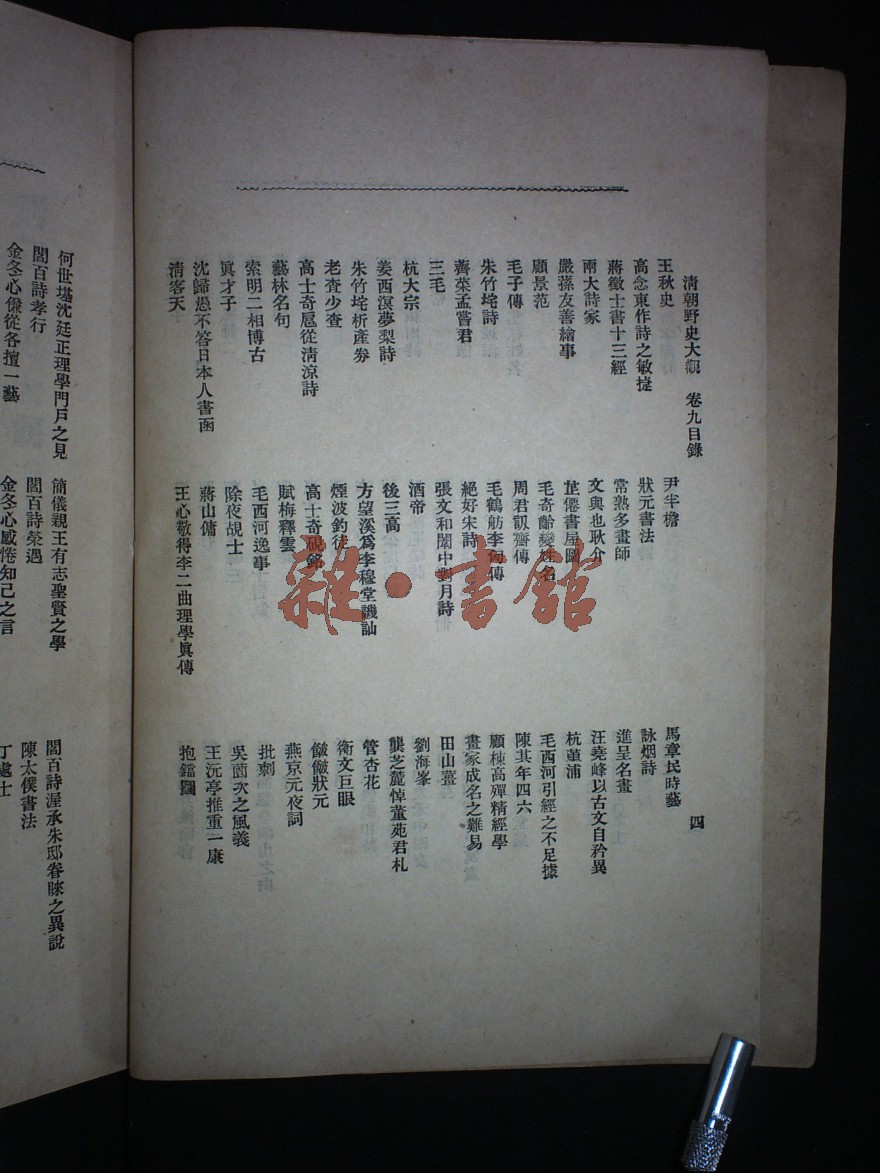 清朝野史大觀 卷九目錄
四
王秋史
尹半檐
馬章民時藝
高念東作詩之敏捷
狀元書法
詠烟詩
蔣徵士書十三經
常熟多畫師
進呈名畫
兩大詩家
文與也耿介
汪堯峰以古文自矜異
嚴蓀友善繪事
芷僊書屋圖
杭董浦
顧景范
毛奇齡變姓名
毛西河引經之不足據
毛子傳
周君瓰齋傳
陳其年四六
朱竹垞詩
毛鶴舫李
傳
顧棟高殫精經學
薺菜孟嘗君
絕好宋詩
畫家成名之難易
三毛
張文和闈中對月詩
田山薑
杭大宗
酒帝
劉海峯
姜西溟夢梨詩
後三高
龔芝麓悼董苑君札
朱竹垞析產券
方望溪爲李穆堂譏訕
管杏花
老查少查
煙波釣徒
衡文巨眼
高士奇扈從清涼詩
高士奇硯銘
僦僦狀元
藝林名句
賦梅釋雲
燕京元夜詞
索明二相博古
毛西河逸事
批刺
眞才子
除夜覘士
吳薗次之風義
沈歸愚不答日本人書函
蔣山傭
王沅亭推重一康
清客天
王心敬得李二曲理學眞傳
抱鐺圖
何世璂沈廷正理學門戶之見
簡儀親王有志聖賢之學
閻百詩渥承朱邸眷睞之異說
閻百詩孝行
閻百詩榮遇
陳太僕書法
金冬心傔從各擅一藝
金冬心感惓知己之言
丁處士
雜·書館